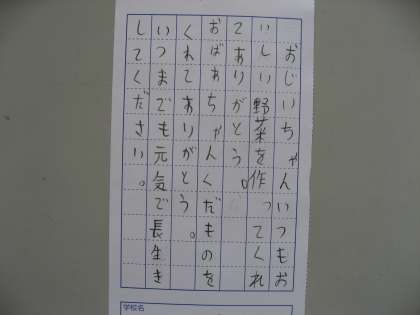 おじいちゃんいつもお
いしい野菜を作ってくれ
てありがとう。
おばあちゃんくだものを
くれてありがとう。
いつまでも元気で長生き
してください。
学校名